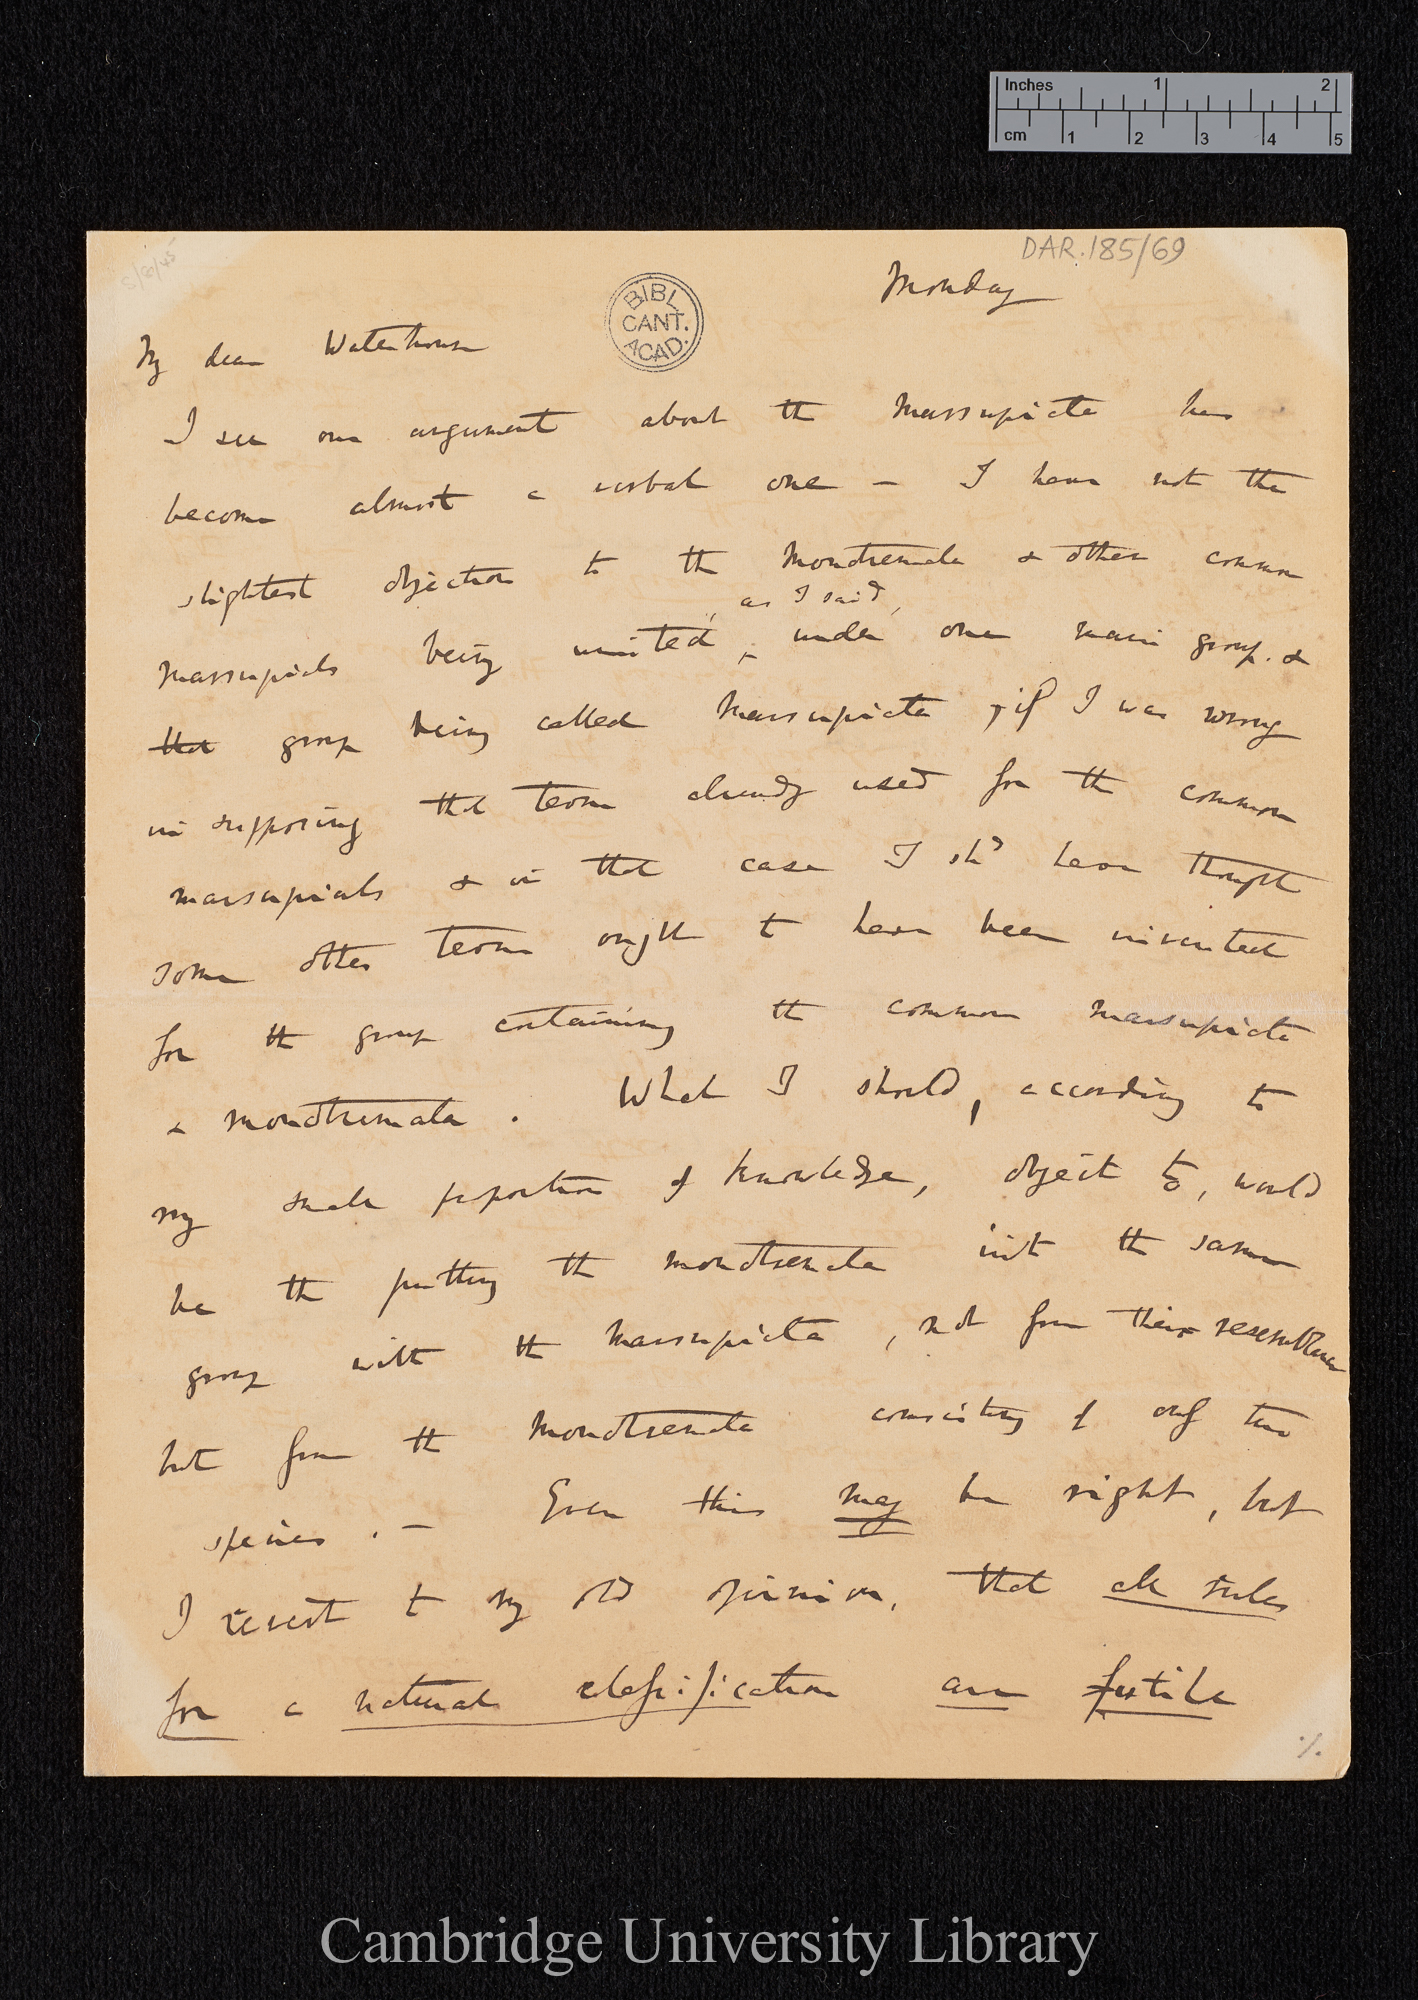 Inches 1 2
cm 1 2 3 4 5
DAR.185/69
BIBL.
CANT.
ACAD.
Monday
My dear Waterhouse
I see our argument about the Marsupiata has
become almost a verbal one — I have not the
slightest objection to the Monotremata & other common
marsupials being united, as I said, under one main group. &
that group being called Marsupiata; if I was wrong
in supposing that term already used for the common
marsupials & in that case I shd have thought
some other term ought to have been invented
for the group containing the common marsupiata
& monotremata. What I should, according to
my small proportion of knowledge, object to, would
be the putting the monotremata into the same
group with the Marsupiata, not from their resemblance
but from the Monotremata consisting of only two
species. — Even this may be right, but
I revert to my old opinion, that all rules
for a natural classification are futile
./.
Cambridge University Library